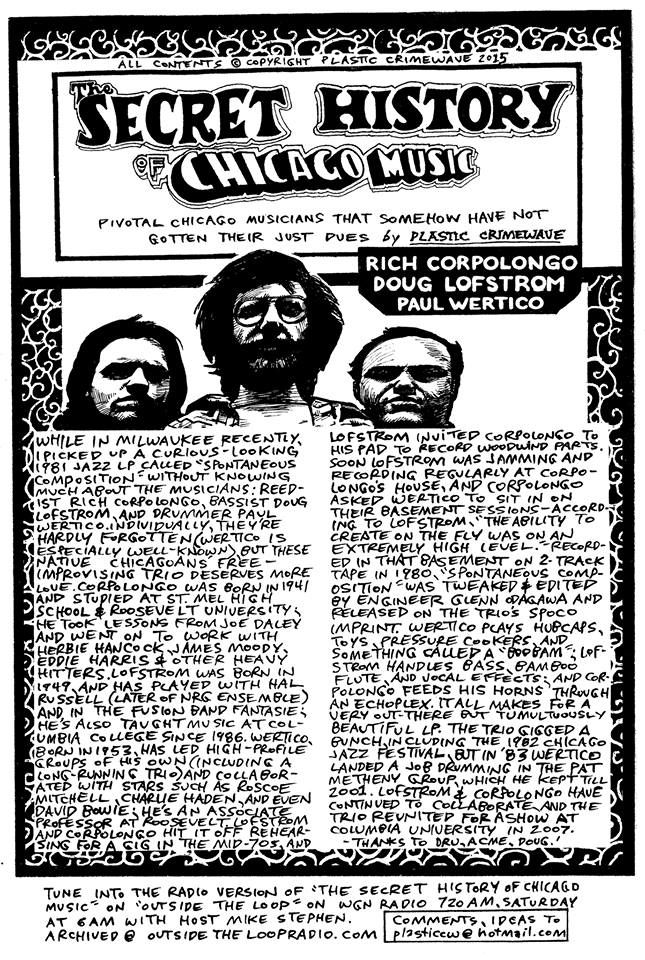 ALL CONTENTS © COPYRIGHT PLASTIC CRIMEWAVE 2015
The
SECRET HISTORY
OF CHICAGO MUSIC
PIVOTAL CHICAGO MUSICIANS THAT SOMEHOW HAVE NOT
GOTTEN THEIR JUST DUES by PLASTIC CRIMEWAVE
RICH CORPOLONGO
DOUG LOFSTROM
PAUL WERTICO
WHILE IN MILWAUKEE RECENTLY,
I PICKED UP A CURIOUS-LOOKING
1981 JAZZ LP CALLED "SPONTANEOUS
COMPOSITION" WITHOUT KNOWING
MUCH ABOUT THE MUSICIANS: REED-
IST RICH CORPOLONGO, BASSIST DOUG
LOFSTROM, AND DRUMMER PAUL
WERTICO. INDIVIDUALLY, THEY'RE
HARDLY FORGOTTEN (WERTICO IS
ESPECIALLY WELL-KNOWN), BUT THESE
NATIVE CHICAGOANS' FREE-
IMPROVISING TRIO DESERVES MORE
LOVE. CORPOLONGO WAS BORN IN 1941
AND STUDIED AT ST. MEL HIGH
SCHOOL & ROOSEVELT UNIVERSITY;
HE TOOK LESSONS FROM JOE DALEY
AND WENT ON TO WORK WITH
HERBIE HANCOCK, JAMES MOODY,
EDDIE HARRIS & OTHER HEAVY
HITTERS. LOFSTROM WAS BORN IN
1949, AND HAS PLAYED WITH HAL
RUSSELL (LATER OF NRG ENSEMBLE)
AND IN THE FUSION BAND FANTASIE;
HE'S ALSO TAUGHT MUSIC AT COL-
UMBIA COLLEGE SINCE 1986. WERTICO,
BORN IN 1953, HAS LED HIGH-PROFILE
GROUPS OF HIS OWN (INCLUDING A
LONG-RUNNING TRIO) AND COLLABOR-
ATED WITH STARS SUCH AS ROSCOE
MITCHELL, CHARLIE HADEN, AND EVEN
DAVID BOWIE; HE'S AN ASSOCIATE
PROFESSOR AT ROOSEVELT. LOFSTROM
AND CORPOLONGO HIT IT OFF REHEAR-
SING FOR A GIG IN THE MID-70S, AND
LOFSTROM INVITED CORPOLONGO TO
HIS PAD TO RECORD WOODWIND PARTS.
SOON LOFSTROM WAS JAMMING AND
RECORDING REGULARLY AT CORPO-
LONGO'S HOUSE, AND CORPOLONGO
ASKED WERTICO TO SIT IN ON
THEIR BASEMENT SESSIONS—ACCORD-
ING TO LOFSTROM, "THE ABILITY TO
CREATE ON THE FLY WAS ON AN
EXTREMELY HIGH LEVEL." RECORD-
ED IN THAT BASEMENT ON 2-TRACK
TAPE IN 1980, "SPONTANEOUS COMP-
OSITION" WAS TWEAKED & EDITED
BY ENGINEER GLENN ODAGAWA AND
RELEASED ON THE TRIO'S SPOCO
IMPRINT. WERTICO PLAYS HUBCAPS,
TOYS, PRESSURE COOKERS, AND
SOMETHING CALLED A "BOOBAM"; LOF-
STROM HANDLES BASS, BAMBOO
FLUTE, AND VOCAL EFFECTS; AND COR-
POLONGO FEEDS HIS HORNS THROUGH
AN ECHOPLEX. IT ALL MAKES FOR A
VERY OUT-THERE BUT TUMULTUOUSLY
BEAUTIFUL LP. THE TRIO GIGGED A
BUNCH, INCLUDING THE 1982 CHICAGO
JAZZ FESTIVAL, BUT IN '83 WERTICO
LANDED A JOB DRUMMING IN THE PAT
METHENY GROUP, WHICH HE KEPT TILL
2001. LOFSTROM & CORPOLONGO HAVE
CONTINUED TO COLLABORATE, AND THE
TRIO REUNITED FOR A SHOW AT
COLUMBIA UNIVERSITY IN 2007.
-THANKS TO DRU, ACME, DOUG!
TUNE INTO THE RADIO VERSION OF "THE SECRET HISTORY OF CHICAGO
MUSIC" ON "OUTSIDE THE LOOP" ON WGN RADIO 720 AM, SATURDAY
AT 6AM WITH HOST MIKE STEPHEN.
ARCHIVED @ OUTSIDETHELOOPRADIO.COM
COMMENTS, IDEAS TO
plasticcw@hotmail.com